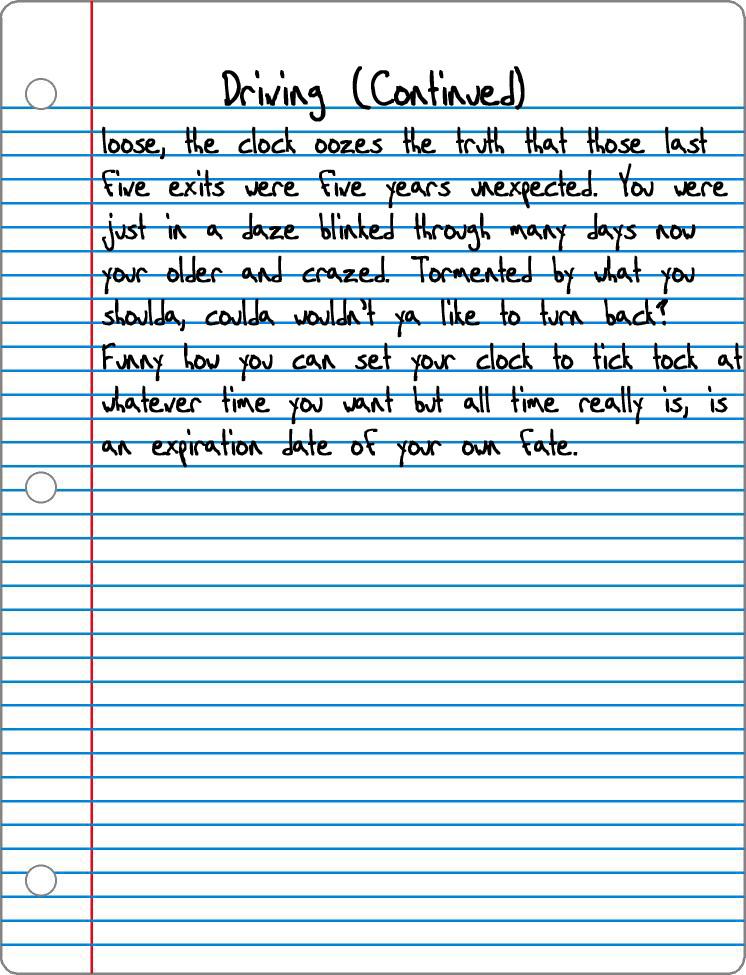 Driving (Continued)
loose, the clock oozes the truth that those last
five exits were five years unexpected. You were
just in a daze blinked through many days now
your older and crazed. Tormented by what you
shoulda, coulda wouldn't ya like to turn back?
Funny how you can set your clock to tick tock at
whatever time you want but all time really is, is
an expiration date of your own fate.